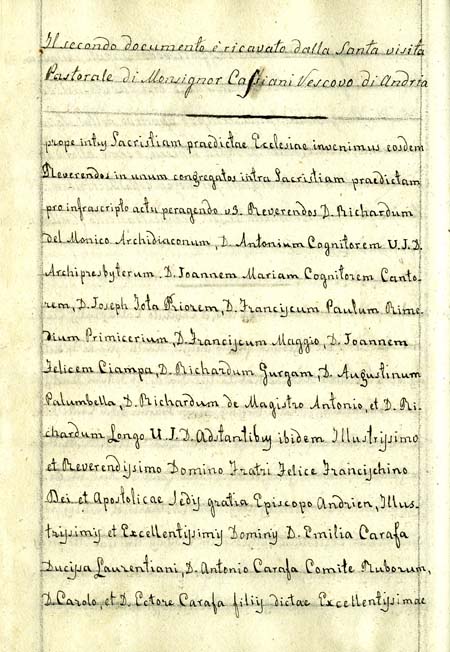 Il secondo documento è ricavato dalla Santa visita
Pastorale di Monsignor Cassiani Vescovo di Andria
prope intus Sacristiam praedictae Ecclesiae invenimus eosdem
Reverendos in unum congregatos intra Sacristiam praedictam
pro infrascripto actu peragendo vs. Reverendos D. Richardum
del Monico Archidiaconum, D. Antonium Cognitorem U.J.D.
Archipresbyterum. D. Joannem Mariam Cognitorem Canto-
rem, D. Joseph Jota Priorem, D. Franciscum Paulum Rime-
dium Primicerium, D. Franciscum Maggio, D. Joannem
Felicem Ciampa, D. Richardum Gurgam, D. Augustinum
Palumbella, D. Richardum de Magistro Antonio, et D. Ri-
chardum Longo U.J.D. Adstantibus ibidem Illustrissimo
et Reverendissimo Domino Fratri Felice Francischino
Dei et Apostolicae Sedis gratia Episcopo Andrien, Illus-
trissimis et Excellentissimis Dominis D. Emilia Carafa
Ducissa Laurentiani, D. Antonio Carafa Comite Ruborum,
D. Carolo, et D. Ectore Carafa filiis dictae Excellentissimae